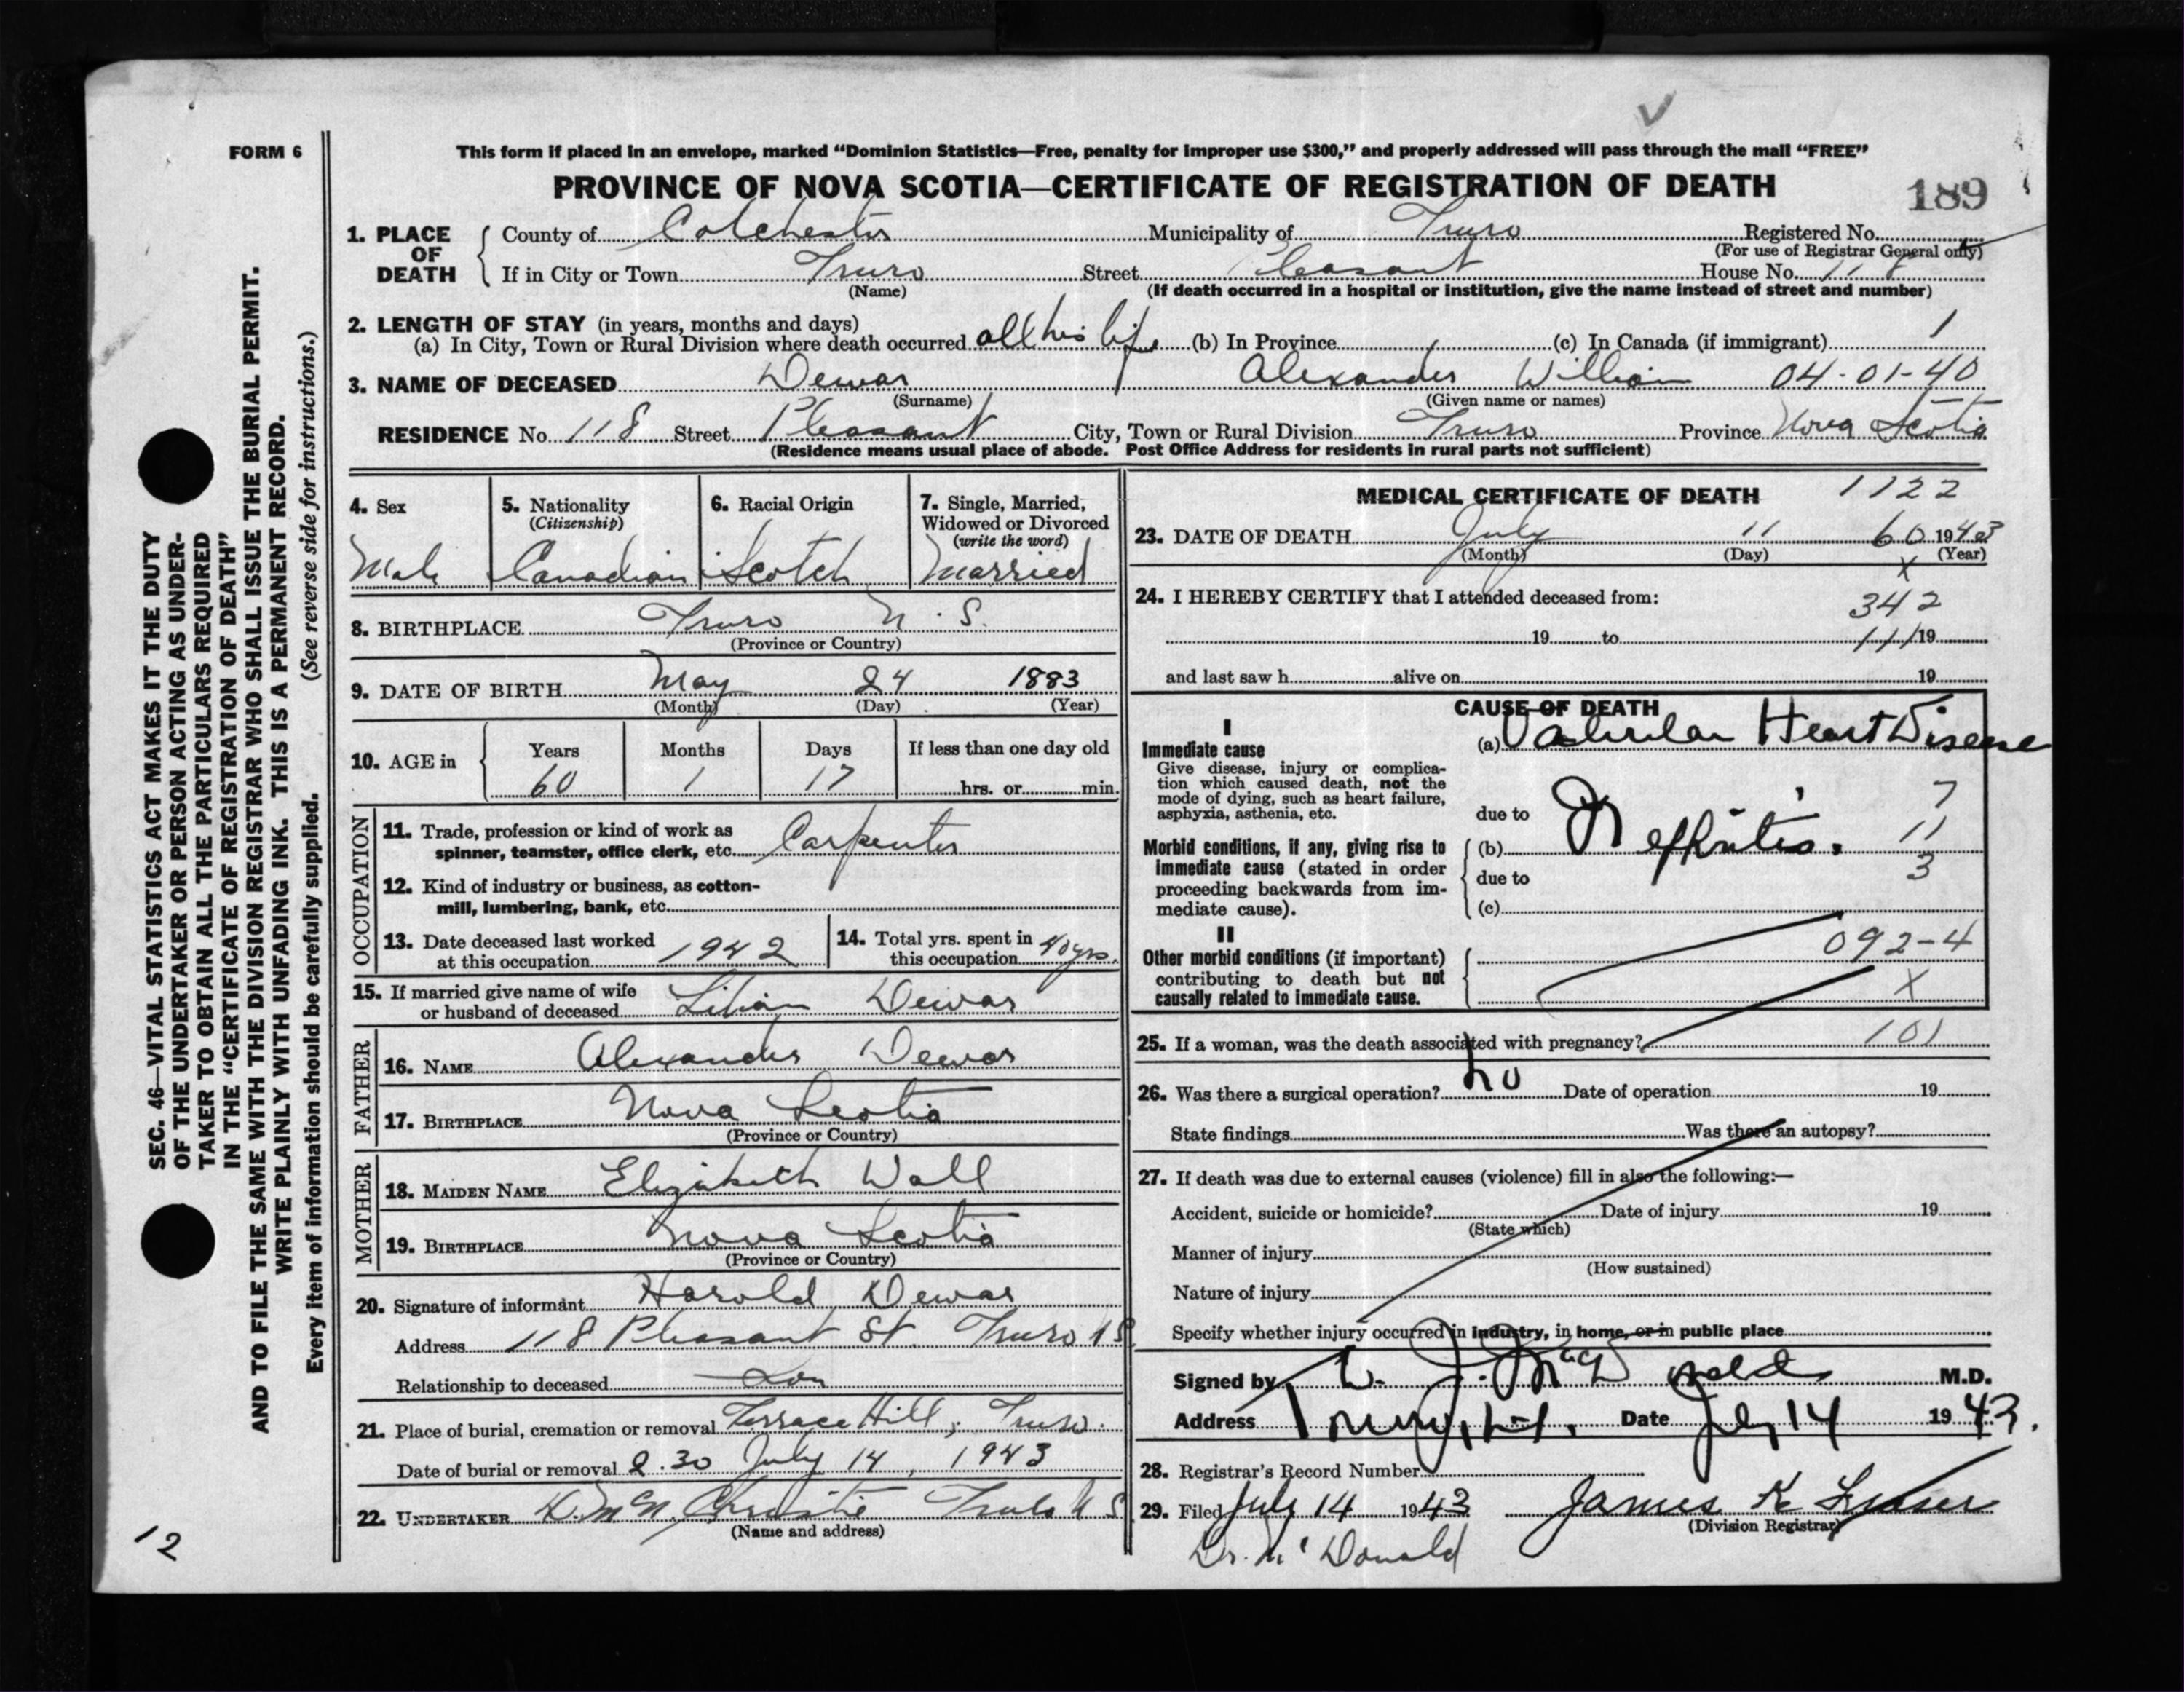 FORM 6
This form if placed in an envelope, marked “Dominion Statistics—Free, penalty for improper use $300,” and properly addressed will pass through the mail “FREE”
PROVINCE OF NOVA SCOTIA—CERTIFICATE OF REGISTRATION OF DEATH
189
1. PLACE OF DEATH
County of Colchester Municipality of Truro Registered No.
(For use of Registrar General only)
If in City or Town Truro Street Pleasant House No. 118
(Name) (If death occurred in a hospital or institution, give the name instead of street and number)
2. LENGTH OF STAY (in years, months and days)
(a) In City, Town or Rural Division where death occurred all his life (b) In Province (c) In Canada (if immigrant) 1
3. NAME OF DECEASED Dewar Alexander William 04-01-40
(Surname) (Given name or names)
RESIDENCE No. 118 Street Pleasant City, Town or Rural Division Truro Province Nova Scotia
(Residence means usual place of abode. Post Office Address for residents in rural parts not sufficient)
4. Sex
Male
5. Nationality
(Citizenship)
Canadian
6. Racial Origin
Scotch
7. Single, Married,
Widowed or Divorced
(write the word)
Married
8. BIRTHPLACE Truro N.S.
(Province or Country)
9. DATE OF BIRTH May 24 1883
(Month) (Day) (Year)
10. AGE in
Years Months Days If less than one day old
60 1 17 hrs. or min.
OCCUPATION
11. Trade, profession or kind of work as
spinner, teamster, office clerk, etc. Carpenter
12. Kind of industry or business, as cotton-
mill, lumbering, bank, etc.
13. Date deceased last worked
at this occupation 1942
14. Total yrs. spent in
this occupation 40 yrs.
15. If married give name of wife
or husband of deceased Lilian Dewar
FATHER
16. NAME Alexander Dewar
17. BIRTHPLACE Nova Scotia
(Province or Country)
MOTHER
18. MAIDEN NAME Elizabeth Wall
19. BIRTHPLACE Nova Scotia
(Province or Country)
20. Signature of informant Harold Dewar
Address 118 Pleasant St. Truro N S
Relationship to deceased Son
21. Place of burial, cremation or removal Terrace Hill, Truro.
Date of burial or removal 2.30 July 14, 1943
22. UNDERTAKER D. McN. Christie Truro N S
(Name and address)
MEDICAL CERTIFICATE OF DEATH 1122
23. DATE OF DEATH July 11 60 1943
(Month) (Day) (Year)
x
24. I HEREBY CERTIFY that I attended deceased from:
342
19 to 19
111
and last saw h alive on 19
CAUSE OF DEATH
I
Immediate cause
Give disease, injury or complica-
tion which caused death, not the
mode of dying, such as heart failure,
asphyxia, asthenia, etc.
(a) Valvular Heart Disease
due to
7
Morbid conditions, if any, giving rise to
immediate cause (stated in order
proceeding backwards from im-
mediate cause).
(b) Nephritis. 11
due to 3
(c)
II
Other morbid conditions (if important)
contributing to death but not
causally related to immediate cause.
092-4
X
25. If a woman, was the death associated with pregnancy? 101
26. Was there a surgical operation? no Date of operation 19
State findings Was there an autopsy?
27. If death was due to external causes (violence) fill in also the following:—
Accident, suicide or homicide? Date of injury 19
(State which)
Manner of injury
(How sustained)
Nature of injury
Specify whether injury occurred in industry, in home, or in public place
Signed by J. McDonald M.D.
Address Date July 14 1943.
28. Registrar's Record Number
29. Filed July 14 1943 James K Fraser
(Division Registrar)
Dr. McDonald
SEC. 46—VITAL STATISTICS ACT MAKES IT THE DUTY
OF THE UNDERTAKER OR PERSON ACTING AS UNDER-
TAKER TO OBTAIN ALL THE PARTICULARS REQUIRED
IN THE “CERTIFICATE OF REGISTRATION OF DEATH”
AND TO FILE THE SAME WITH THE DIVISION REGISTRAR WHO SHALL ISSUE THE BURIAL PERMIT.
WRITE PLAINLY WITH UNFADING INK. THIS IS A PERMANENT RECORD.
Every item of information should be carefully supplied. (See reverse side for instructions.)
12